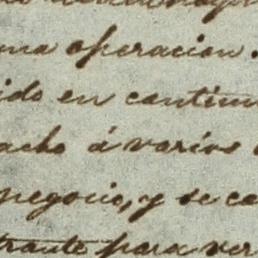 una operacion.
ido en contin
acho á varios
negocio, y se co
trante para ver